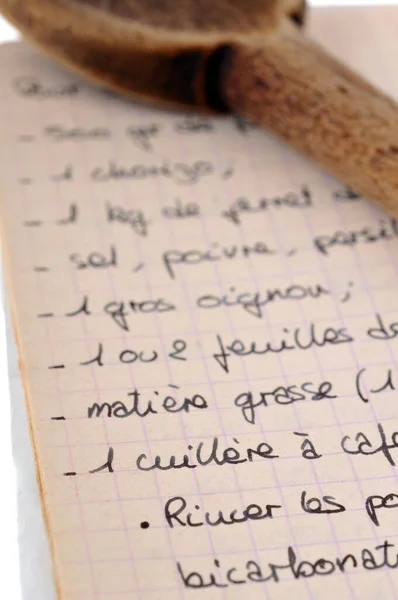 - 1 chorizo,
- 1 kg de jarret
- sel, poivre, persil
- 1 gros oignon,;
- 1 ou 2 feuilles de
- matière grasse (1
- 1 cuillère à café
• Rincer les po
bicarbonat